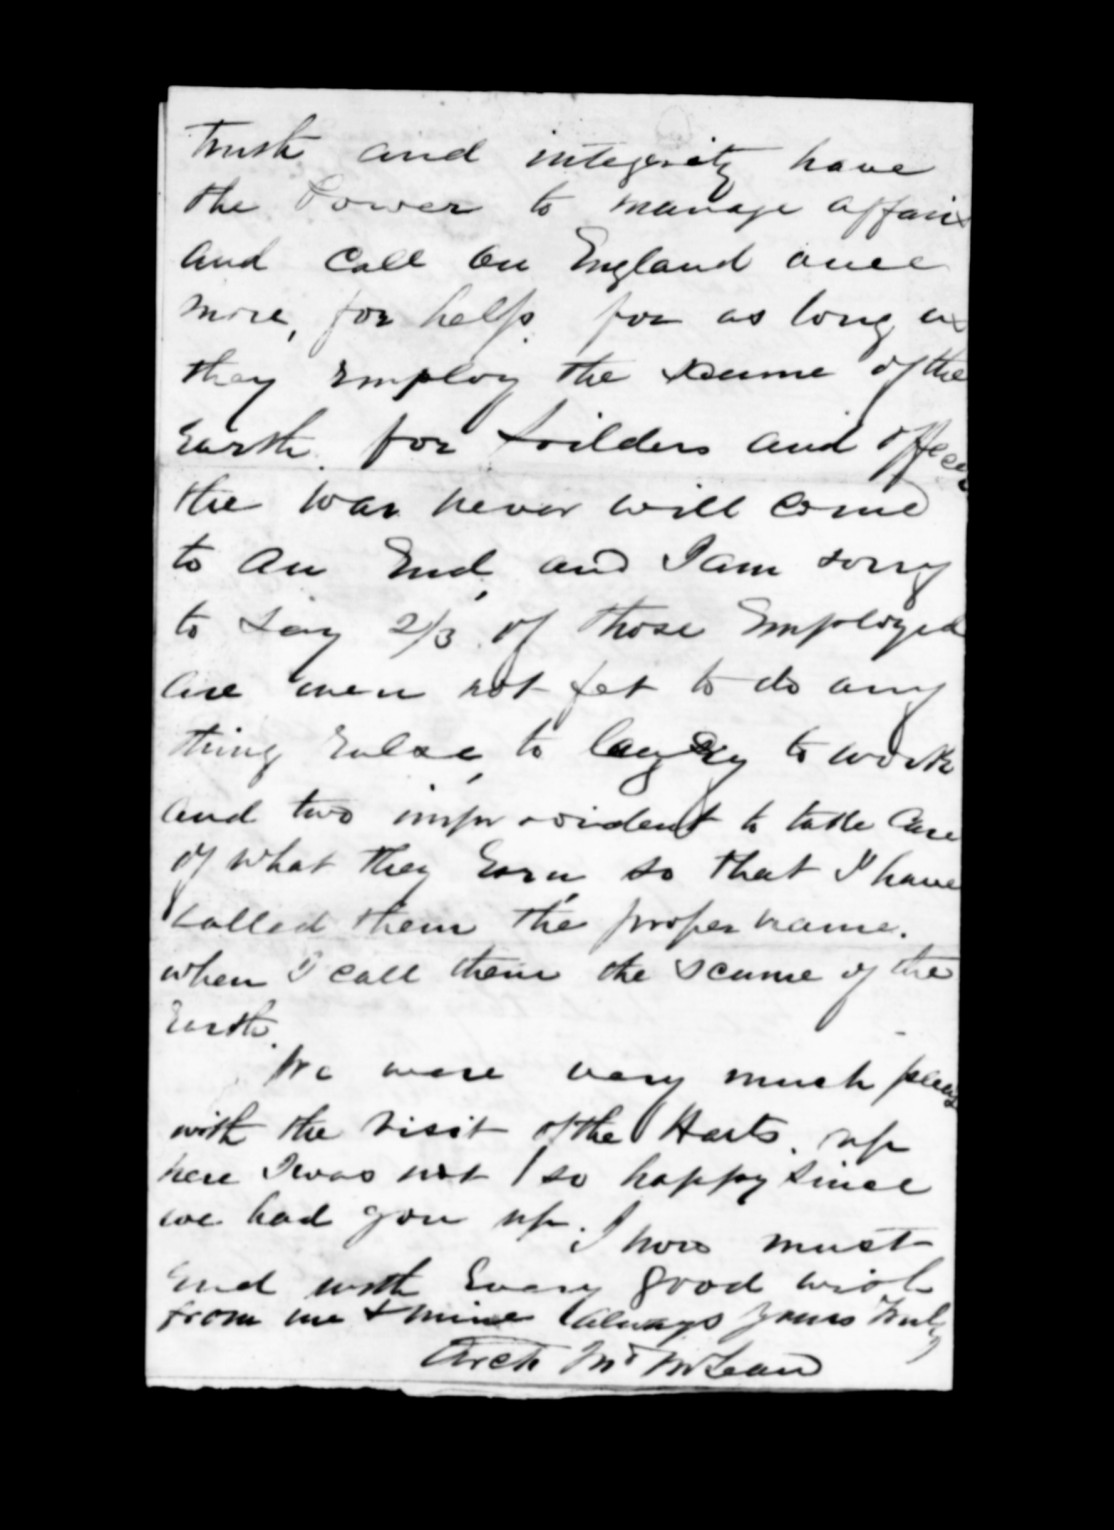 truth and integerity have
the Power to manage affairs
and Call on England once
more, for help. for as long as
they Employ the scume of the
Earth. for soilders and offecers
the War never will come
to an End, and I am sorry
to say 2/3 of those Employed
are men not fet to do any
thing Ealse, to to work
and two improvident to take Care
of what they Earn, so that I have
called them the proper name.
when I call them the scume of the
Earth.
We were very much pleas
with the visit of the Harts. up
here I was not so happy since
we had you up. I now must
End with Every good wish
from me & mine always yours truly
Arch McLean